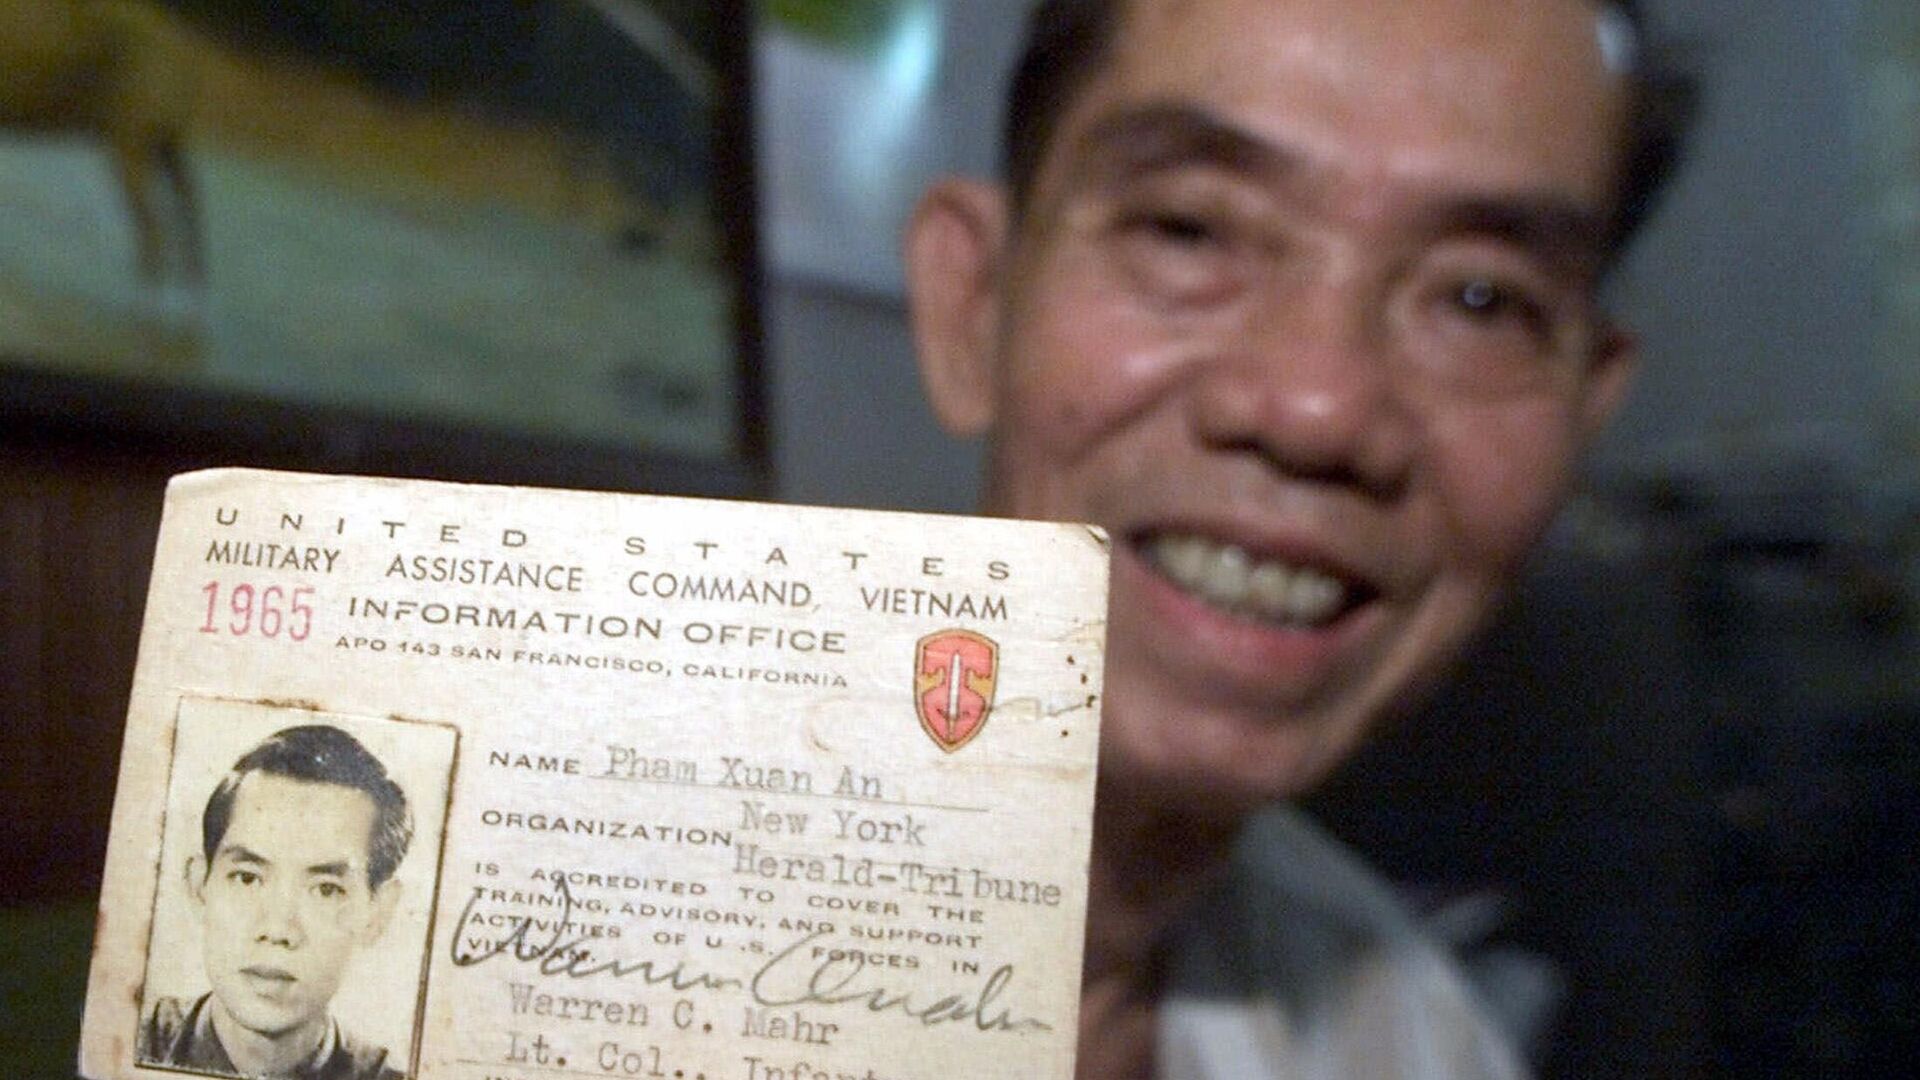 UNITED STATES
MILITARY ASSISTANCE COMMAND, VIETNAM
1965 INFORMATION OFFICE
APO 143 SAN FRANCISCO, CALIFORNIA
NAME Pham Xuan An
ORGANIZATION New York
Herald-Tribune
IS ACCREDITED TO COVER THE
TRAINING, ADVISORY, AND SUPPORT
ACTIVITIES OF U.S. FORCES IN
VIETNAM.
Warren C. Mahr
Lt. Col.,